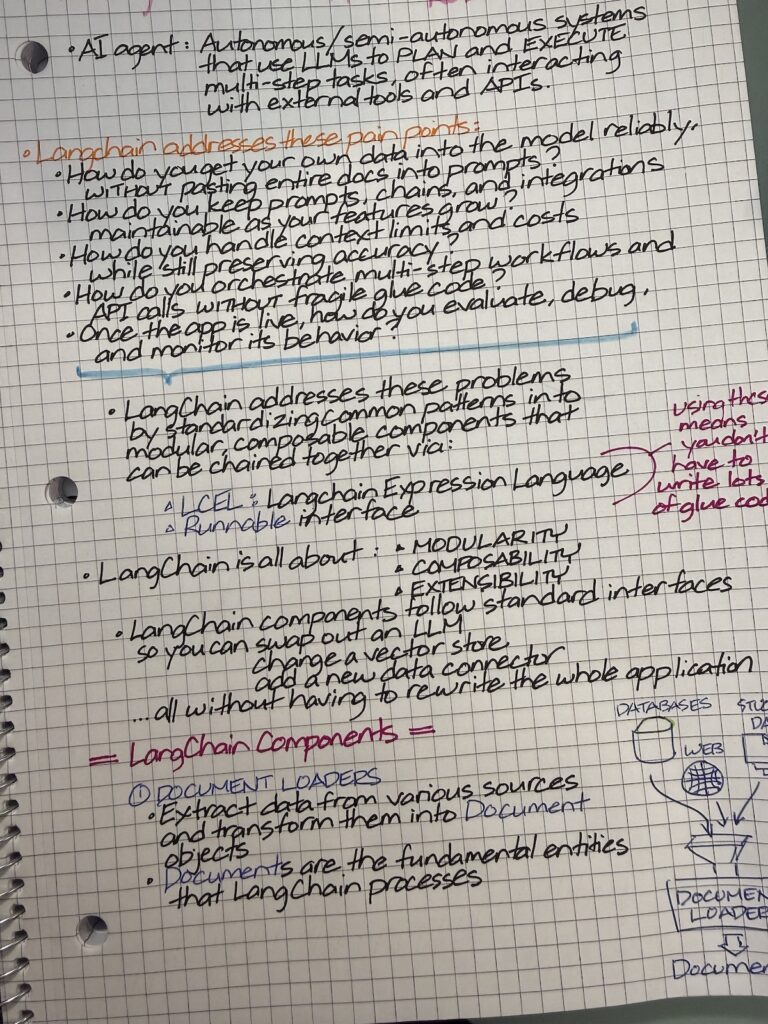 • AI agent: Autonomous/semi-autonomous systems
that use LLMs to PLAN and EXECUTE
multi-step tasks, often interacting
with external tools and APIs.
• Langchain addresses these pain points:
• How do you get your own data into the model reliably,
WITHOUT pasting entire docs into prompts?
• How do you keep prompts, chains, and integrations
maintainable as your features grow?
• How do you handle context limits and costs
while still preserving accuracy?
• How do you orchestrate multi-step workflows and
API calls WITHOUT fragile glue code?
• Once the app is live, how do you evaluate, debug,
and monitor its behavior?
• LangChain addresses these problems
by standardizing common patterns into
modular, composable components that
can be chained together via:
▵ LCEL: Langchain Expression Language
▵ Runnable interface
using these
means
you don't
have to
write lots
of glue cod
• LangChain is all about: ▴ MODULARITY
▴ COMPOSABILITY
▴ EXTENSIBILITY
• LangChain components follow standard interfaces
so you can swap out an LLM
change a vector store
add a new data connector
...all without having to rewrite the whole application
= LangChain Components =
① DOCUMENT LOADERS
• Extract data from various sources
and transform them into Document
objects
• Documents are the fundamental entities
that LangChain processes
DATABASES
WEB
DOCUMEN
LOADER
Documen